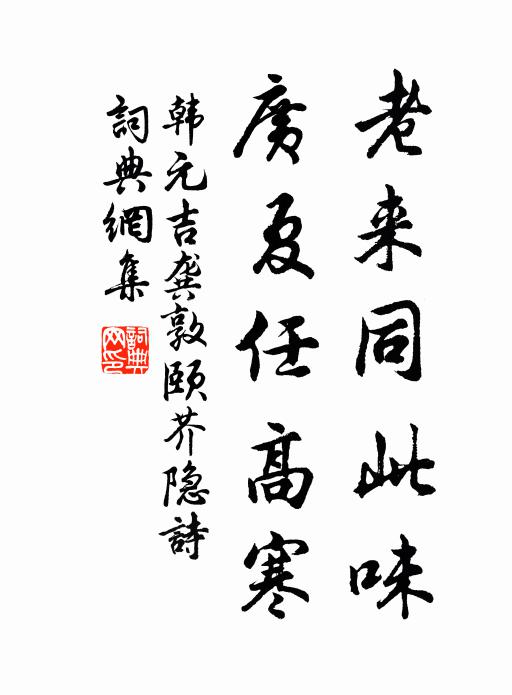 老来同此味
廣夏任高寒
韩元吉龚敦颐芥隐詩
詞典網集
詞典
网印